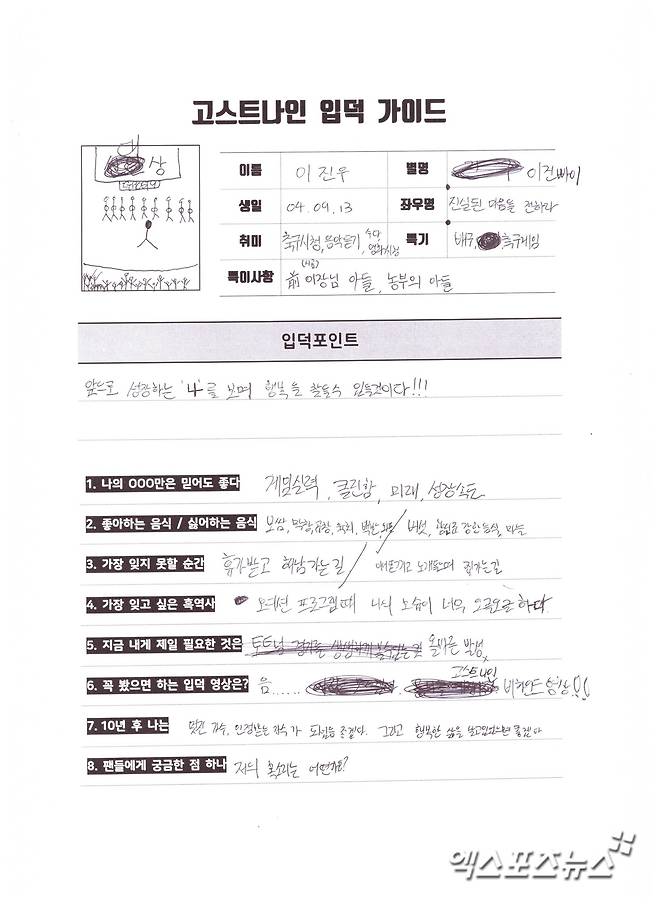 고스트나인 입덕 가이드
대상
이름 이 진우 별명 이진빠이
생일 04.09.13 좌우명 진실된 마음을 전하라
취미 축구시청, 음악듣기, 수다 영화시청 특기 배구, 축구게임
특이사항 前 이장님 아들, 농부의 아들
입덕포인트
앞으로 성장하는 '나'를 보며 행복을 찾을수 있을것이다!!!
1. 나의 OOO만은 믿어도 좋다 게임실력, 쿨진함, 미래, 성장속도
2. 좋아하는 음식 / 싫어하는 음식 보쌈, 막창, 곱창, 버섯, 강한 음식, 마늘
3. 가장 잊지 못할 순간 휴가받고 해남가는길
4. 가장 잊고 싶은 흑역사 오디션 프로그램때 나의 모습이 너무 오글오글하다.
5. 지금 내게 제일 필요한 것은 올바른 발성
6. 꼭 봤으면 하는 입덕 영상은? 음...... 고스트나인 비하인드 영상!!
7. 10년 후 나는 멋진 가수, 인정받는 가수가 되있음 좋겠다. 그리고 행복한 삶을 살고있었으면 좋겠다
8. 팬들에게 궁금한 점 하나 저의 목소리는 어떤가요?
엑스포츠뉴스